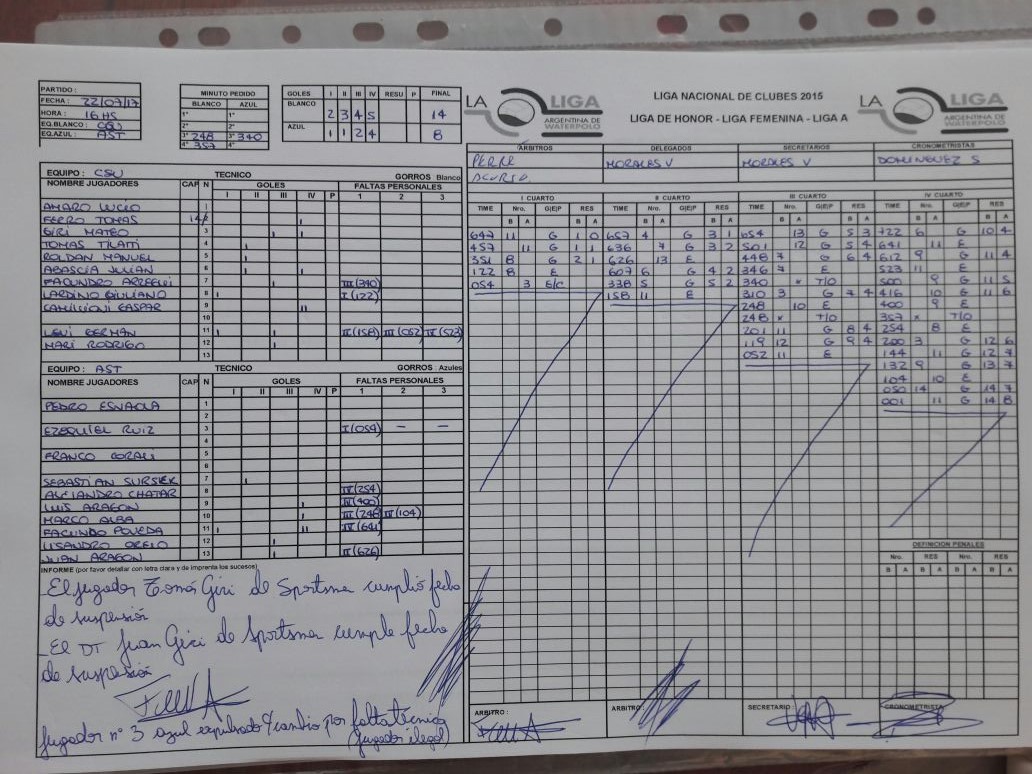 PARTIDO :
FECHA : 22/07/17
HORA : 16 HS
EQ.BLANCO :
EQ.AZUL : AST
MINUTO PEDIDO
BLANCO AZUL
1° 1°
2° 2°
3° 248 3° 340
4° 357 4°
GOLES I II III IV RESU P FINAL
BLANCO 2 3 4 5 14
AZUL 1 1 2 4 8
LA LIGA
ARGENTINA DE WATERPOLO
LIGA NACIONAL DE CLUBES 2015
LIGA DE HONOR - LIGA FEMENINA - LIGA A
LA LIGA
ARGENTINA DE WATERPOLO
ÁRBITROS DELEGADOS SECRETARIOS CRONOMETRISTAS
MORALES V MORALES V DOMINGUEZ S
EQUIPO : CSU TECNICO GORROS : Blanco
NOMBRE JUGADORES CAP N GOLES FALTAS PERSONALES
I II III IV P 1 2 3
AMARO LUCIO 1
FERRO TOMAS 2
GIRI MATEO 3
TOMAS TILATTI 4
ROLDAN MANUEL 5
ABASCIA JULIAN 6
FACUNDO 7 III (340)
LARDINO GIULIANO 8 I (122)
GASPAR 9
10
LENI GERMAN 11 II (158) III (052) IV (523)
MARI RODRIGO 12
13
EQUIPO : AST TECNICO GORROS : Azules
NOMBRE JUGADORES CAP N GOLES FALTAS PERSONALES
I II III IV P 1 2 3
PEDRO 1
2
EZEQUIEL RUIZ 3 I (054) — —
4
FRANCO 5
6
SEBASTIAN 7
ALEJANDRO CHATAR 8 IV (254)
LUIS ARAGON 9 IV (400)
MARCO ALBA 10 III (248) IV (104)
FACUNDO POVEDA 11 IV (641)
LISANDRO 12
JUAN ARAGON 13 II (626)
I CUARTO
TIME Nro. G|E|P RES
B A B A
647 11 G 1 0
457 11 G 1 1
351 8 G 2 1
122 8 E
054 3 E/C
II CUARTO
Nro. G|E|P RES
B A B A
657 4 G 3 1
636 7 G 3 2
626 13 E
607 6 G 4 2
338 5 G 5 2
158 11 E
III CUARTO
TIME Nro. G|E|P RES
B A B A
654 13 G 5 3
501 12 G 5 4
448 7 G 6 4
346 7 E
340 x T/O
310 3 G 7 4
248 10 E
248 x T/O
201 11 G 8 4
119 12 G 9 4
052 11 E
IV CUARTO
TIME Nro. G|E|P RES
B A B A
722 6 G 10 4
641 11 E
612 9 G 11 4
523 11 E
500 9 G 11 5
416 10 G 11 6
400 9 E
357 x T/O
254 8 E
200 3 G 12 6
144 11 G 12 7
132 9 G 13 7
104 10 E
050 14 G 14 7
001 11 G 14 8
DEFINICION PENALES
Nro. RES Nro. RES
B A B A B A B A
INFORME (por favor detallar con letra clara y de imprenta los sucesos)
El jugador Tomás Giri de Sportsman cumplió fecha
de suspensión
El DT Juan Giri de Sportsman cumple fecha
de suspensión
Jugador n° 3 azul expulsado c/cambio por falta tecnica
(jugador ilegal)
ARBITRO : ARBITRO : SECRETARIO : CRONOMETRISTA